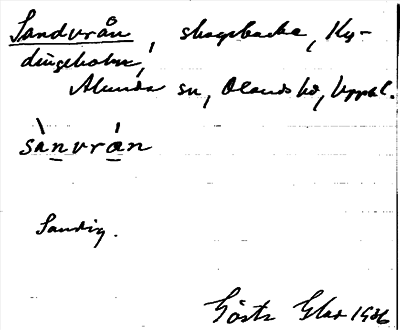 Sandvrån, skogsbacke, Ky-
dingeholm,
Alunda sn, Olands hd, Uppl.
sànvrán
Sandig.
Gösta Glas 1936